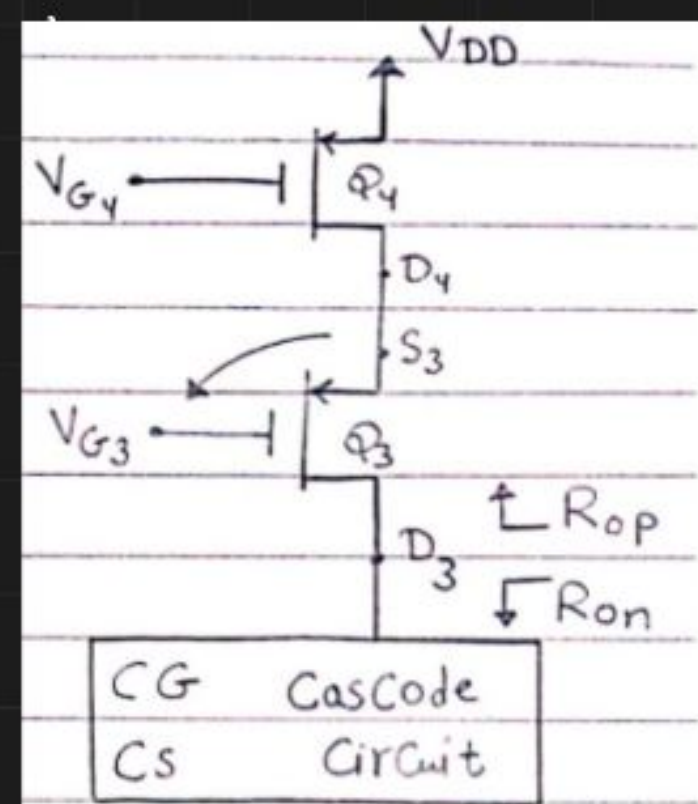 VDD
VG4
Q4
D4
S3
VG3
Q3
Rop
D3
Ron
CG Cascode
CS Circuit